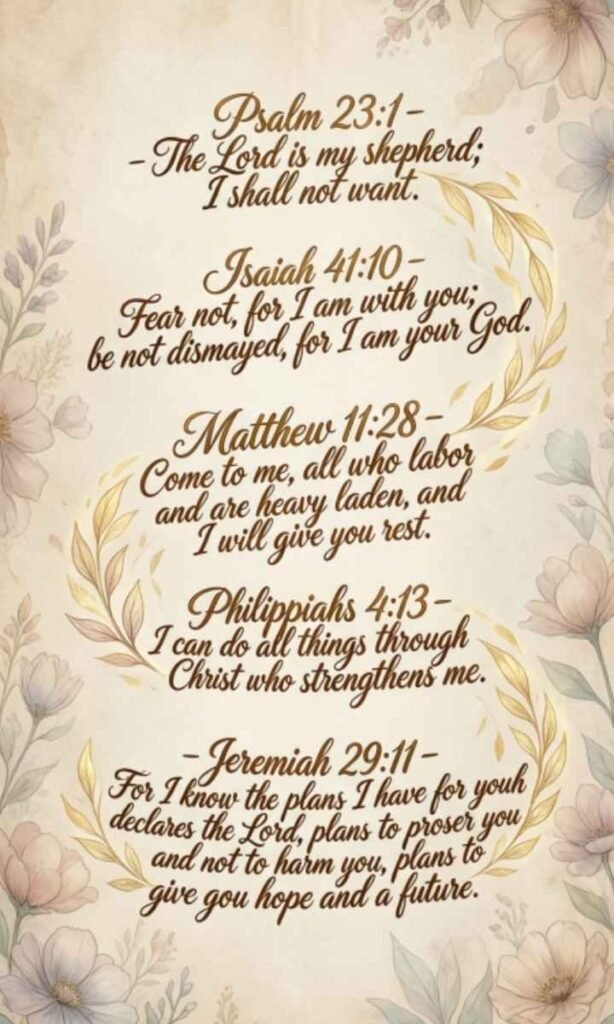 Psalm 23:1 –
– The Lord is my shepherd;
I shall not want.
Isaiah 41:10 –
Fear not, for I am with you;
be not dismayed, for I am your God.
Matthew 11:28 –
Come to me, all who labor
and are heavy laden, and
I will give you rest.
Philippiahs 4:13 –
I can do all things through
Christ who strengthens me.
– Jeremiah 29:11 –
For I know the plans I have for youh
declares the Lord, plans to proser you
and not to harm you, plans to
give gou hope and a future.